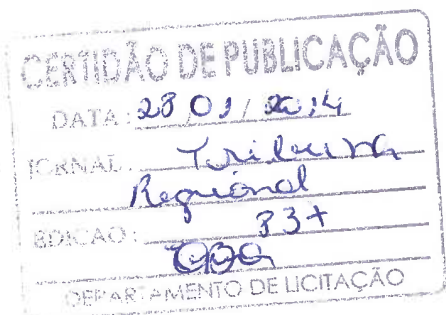 CERTIDÃO DE PUBLICAÇÃO
DATA: 28 / 01 / 2014
JORNAL: Tribuna
Regional
EDIÇÃO: 337
DEPARTAMENTO DE LICITAÇÃO